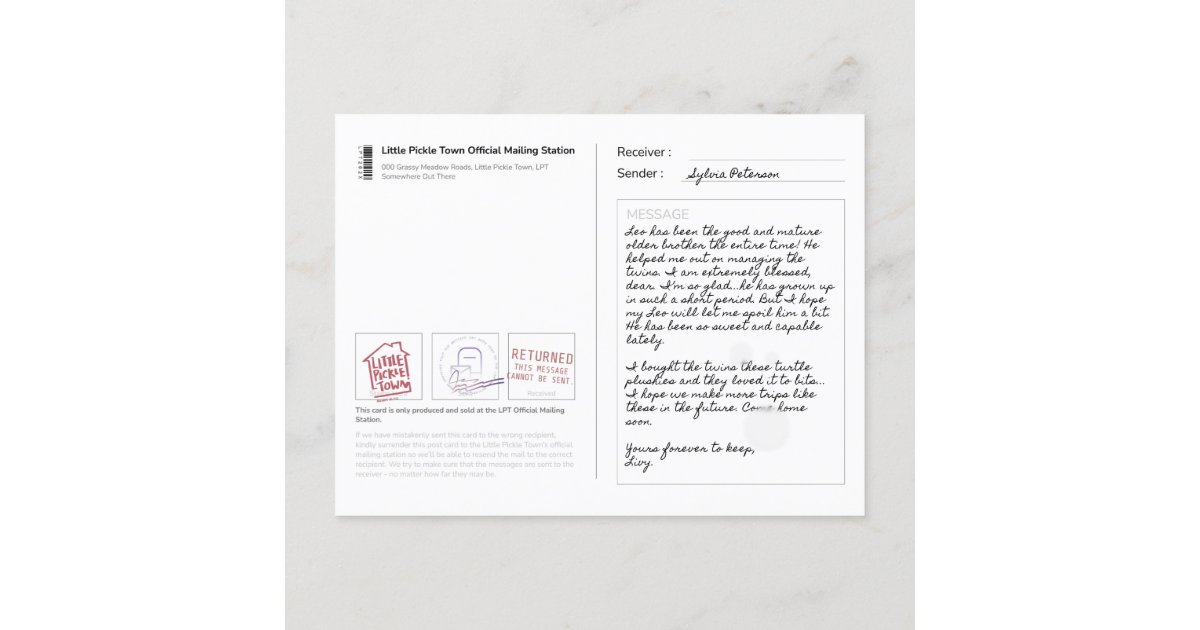 LPT202X
Little Pickle Town Official Mailing Station
000 Grassy Meadow Roads, Little Pickle Town, LPT
Somewhere Out There
LITTLE
PICKLE
TOWN
RETURNED
THIS MESSAGE
CANNOT BE SENT.
Received
This card is only produced and sold at the LPT Official Mailing
Station.
If we have mistakenly sent this card to the wrong recipient,
kindly surrender this post card to the Little Pickle Town's official
mailing station so we'll be able to resend the mail to the correct
recipient. We try to make sure that the messages are sent to the
receiver - no matter how far they may be.
Receiver :
Sender : Sylvia Peterson
MESSAGE
Leo has been the good and mature
older brother the entire time! He
helped me out on managing the
twins. I am extremely blessed,
dear. I'm so glad...he has grown up
in such a short period. But I hope
my Leo will let me spoil him a bit.
He has been so sweet and capable
lately.
I bought the twins these turtle
plushies and they loved it to bits...
I hope we make more trips like
these in the future. Come home
soon.
Yours forever to keep,
Livy.